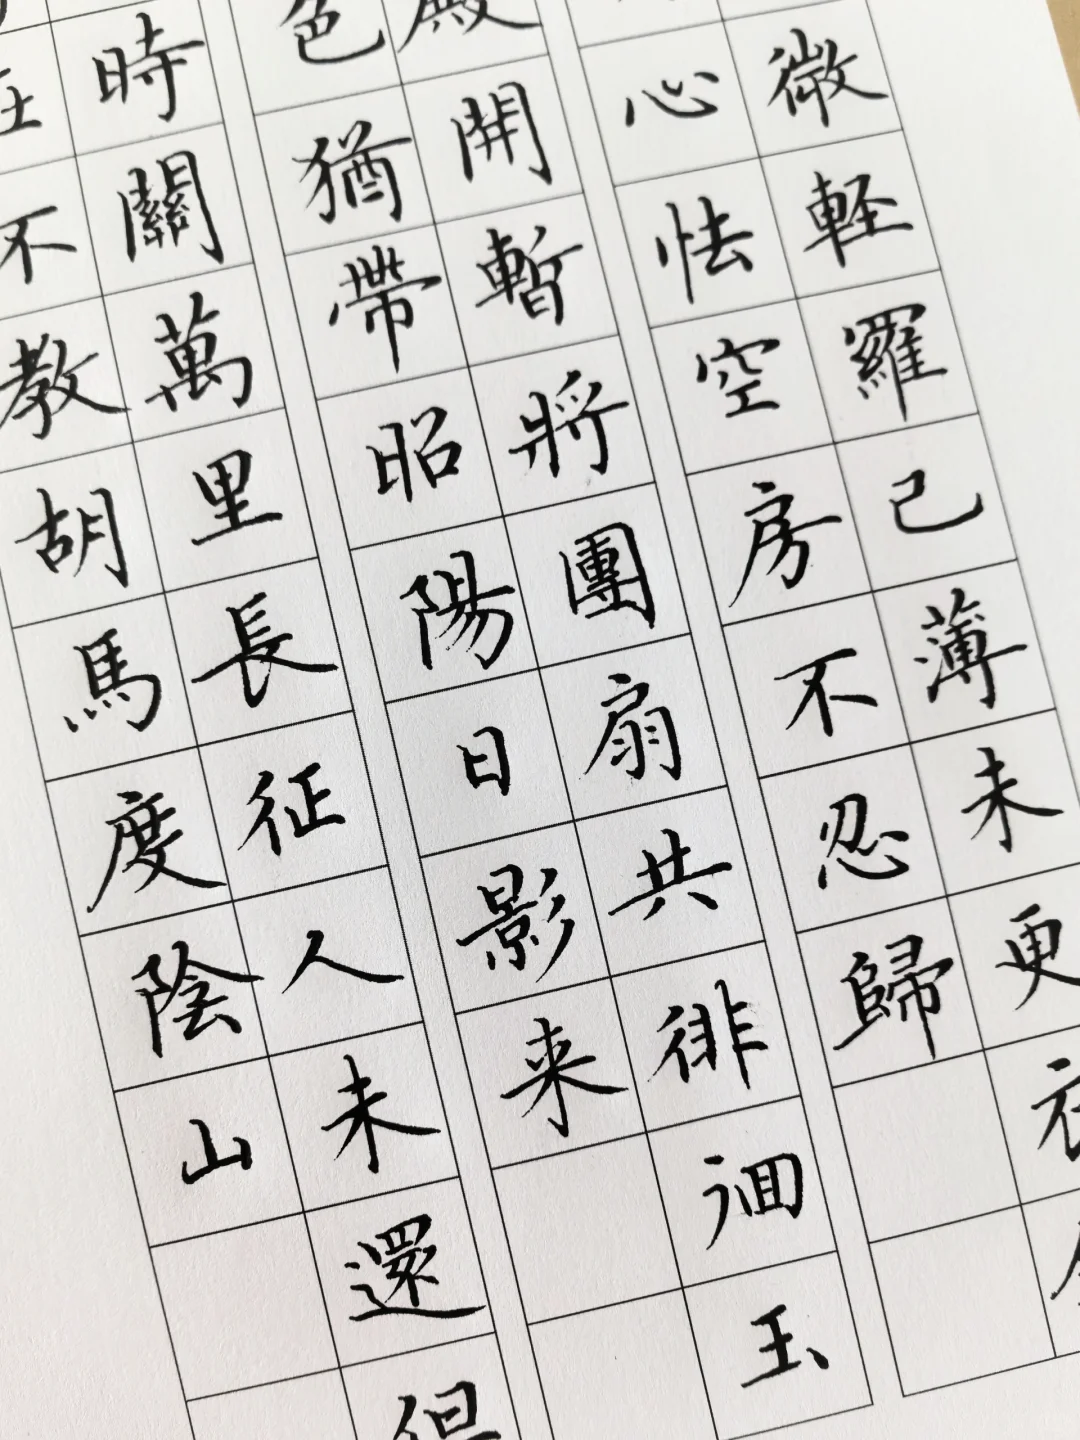 微軽羅已薄未更衣
心怯空房不忍歸
殿開暫將團扇共徘徊玉
色猶帶昭陽日影来
時關萬里長征人未還但
在不教胡馬度陰山